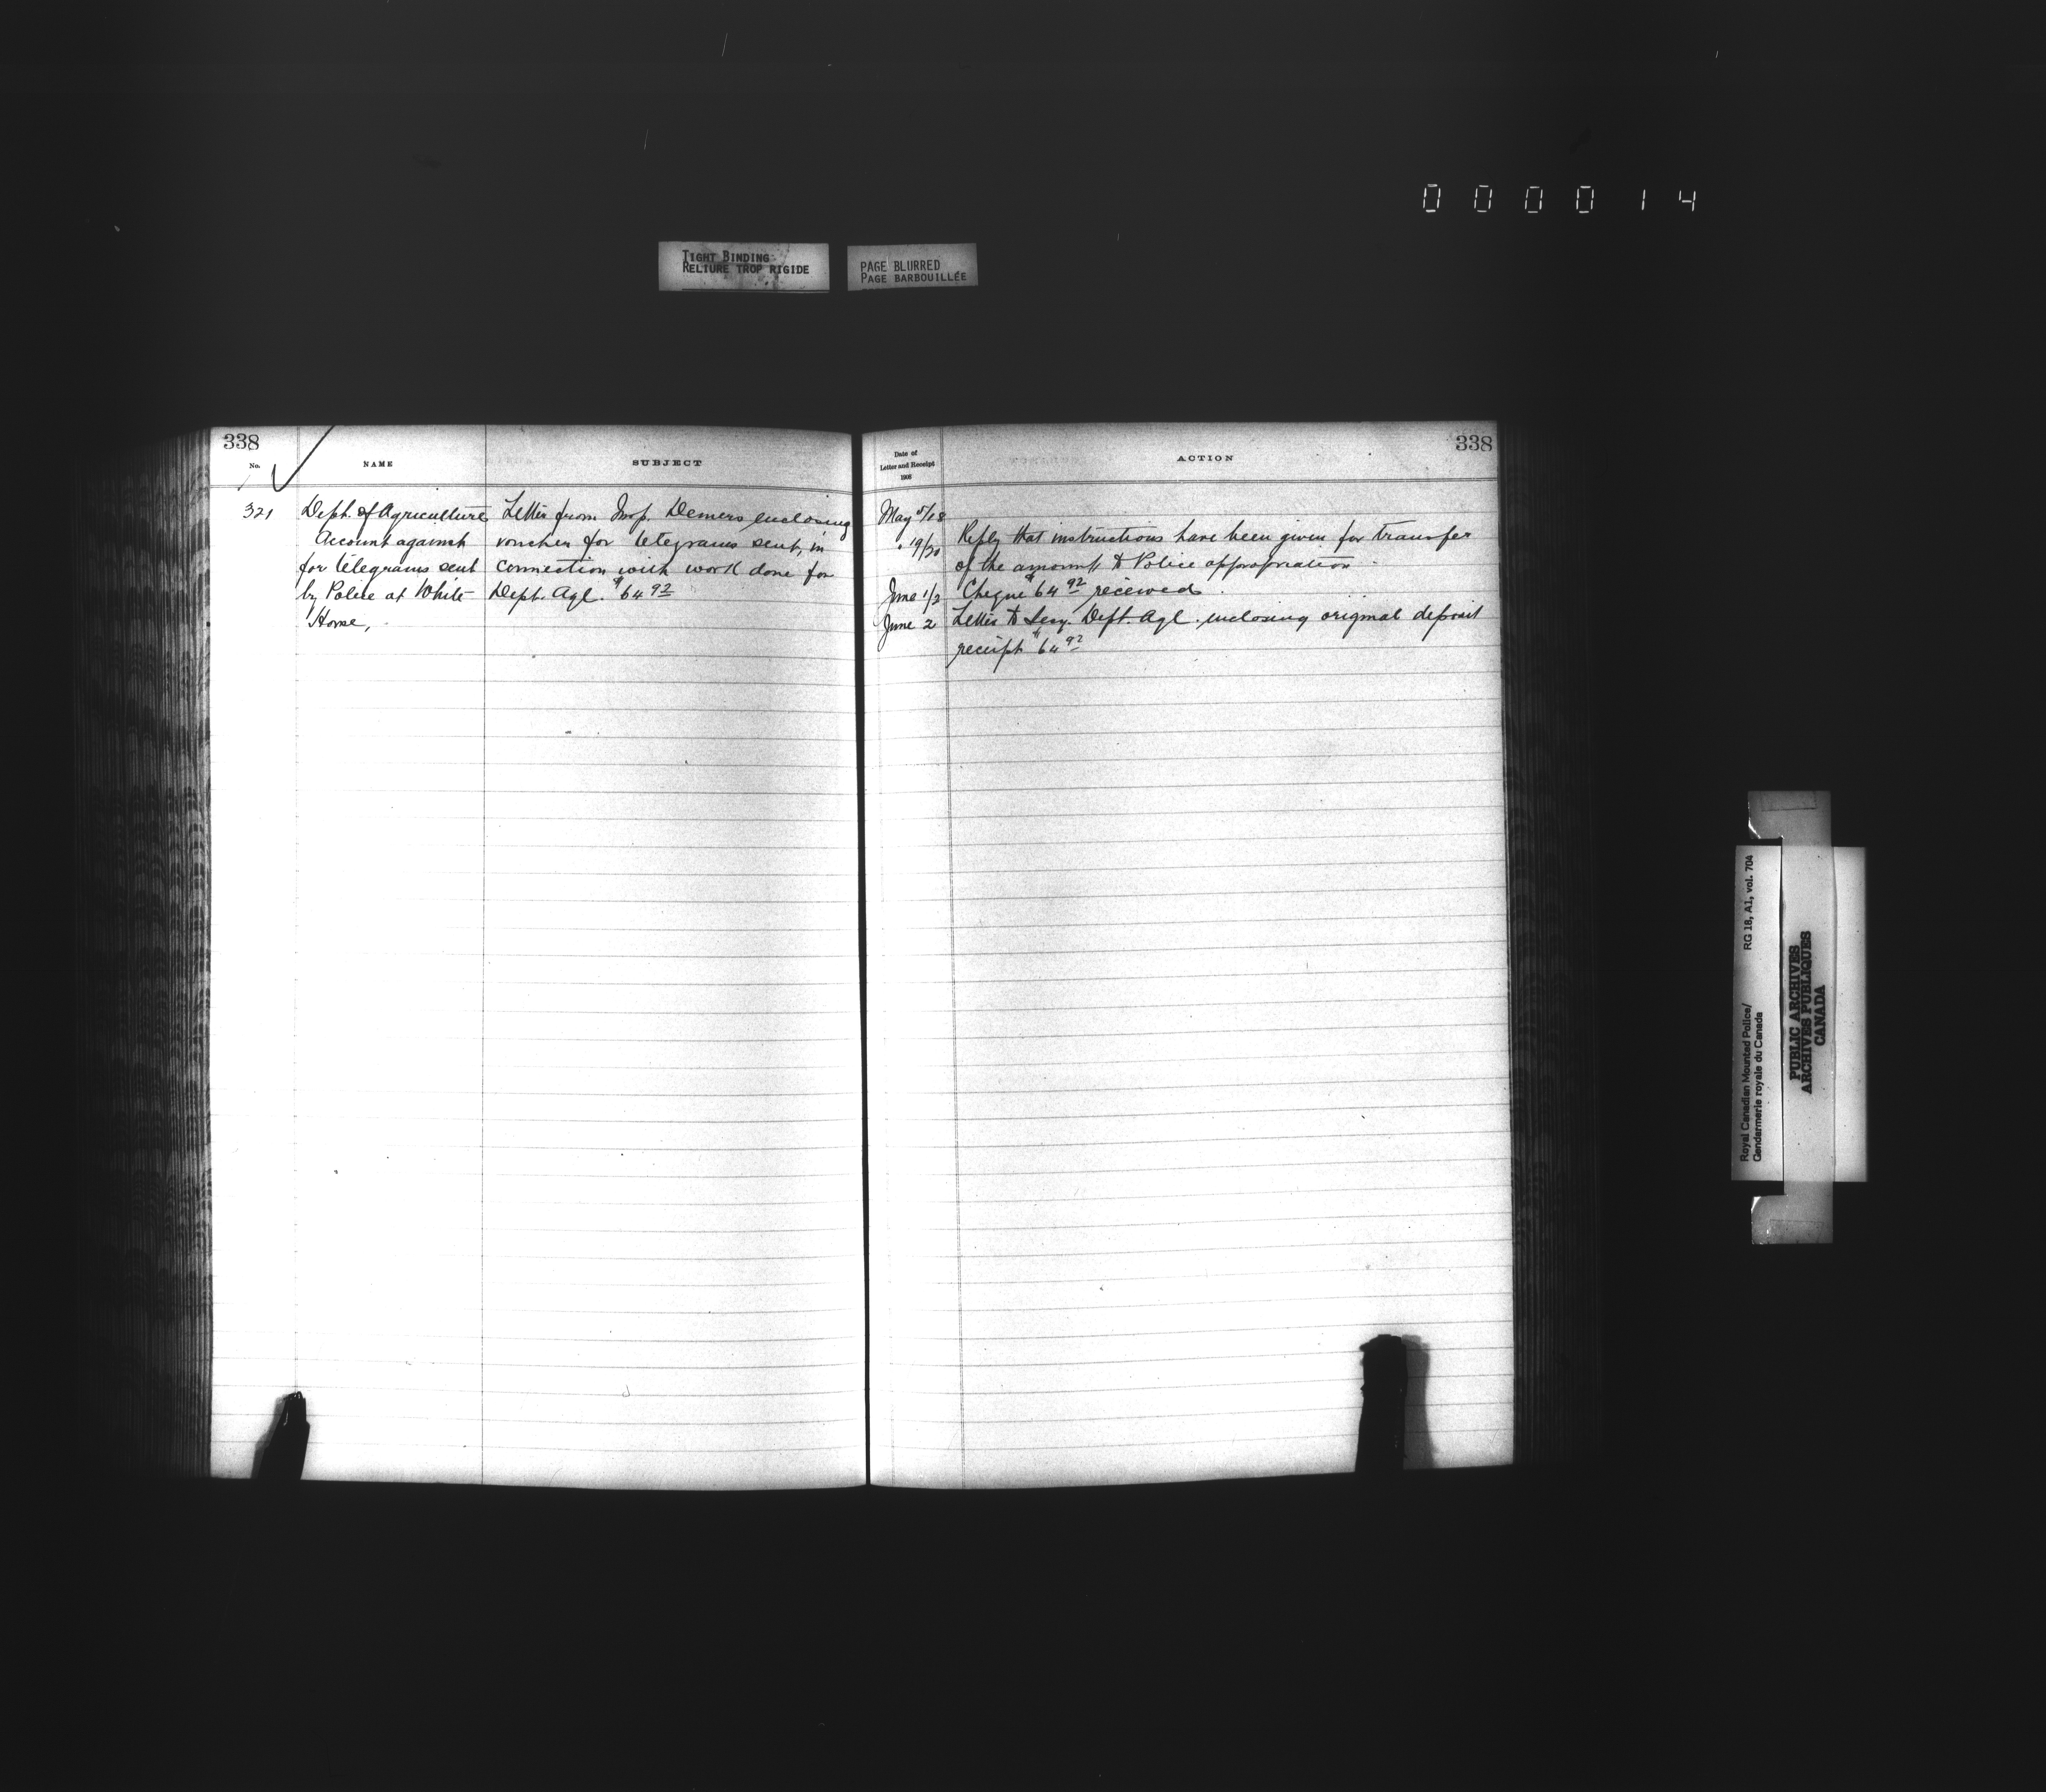 0 0 0 0 1 4
TIGHT BINDING
RELIURE TROP RIGIDE
PAGE BLURRED
PAGE BARBOUILLÉE
338
No.
NAME
SUBJECT
321
Dept. of Agriculture
Account against
for telegrams sent
by Police at White
Horse,
Letter from Insp. Demers enclosing
voucher for telegrams sent, in
connection with work done for
Dept. Agl. $64 92
338
Date of
Letter and Receipt
1908
ACTION
May 5/18
" 19/20 Reply that instructions have been given for transfer
of the amount to Police appropriation
June 1/2 Cheque $64 92 received
June 2 Letter to Secy. Dept. Agl. enclosing original deposit
receipt $64 92
Royal Canadian Mounted Police/ RG 18, A1, vol. 704
Gendarmerie royale du Canada
PUBLIC ARCHIVES
ARCHIVES PUBLIQUES
CANADA